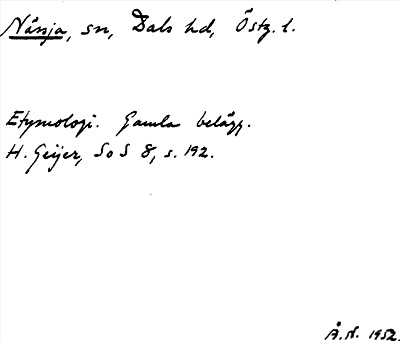 Nässja, sn, Dals hd, Östg. l.
Etymologi. Gamla belägg.
H. Geijer, SoS 8, s. 192.
Å.N. 1952.